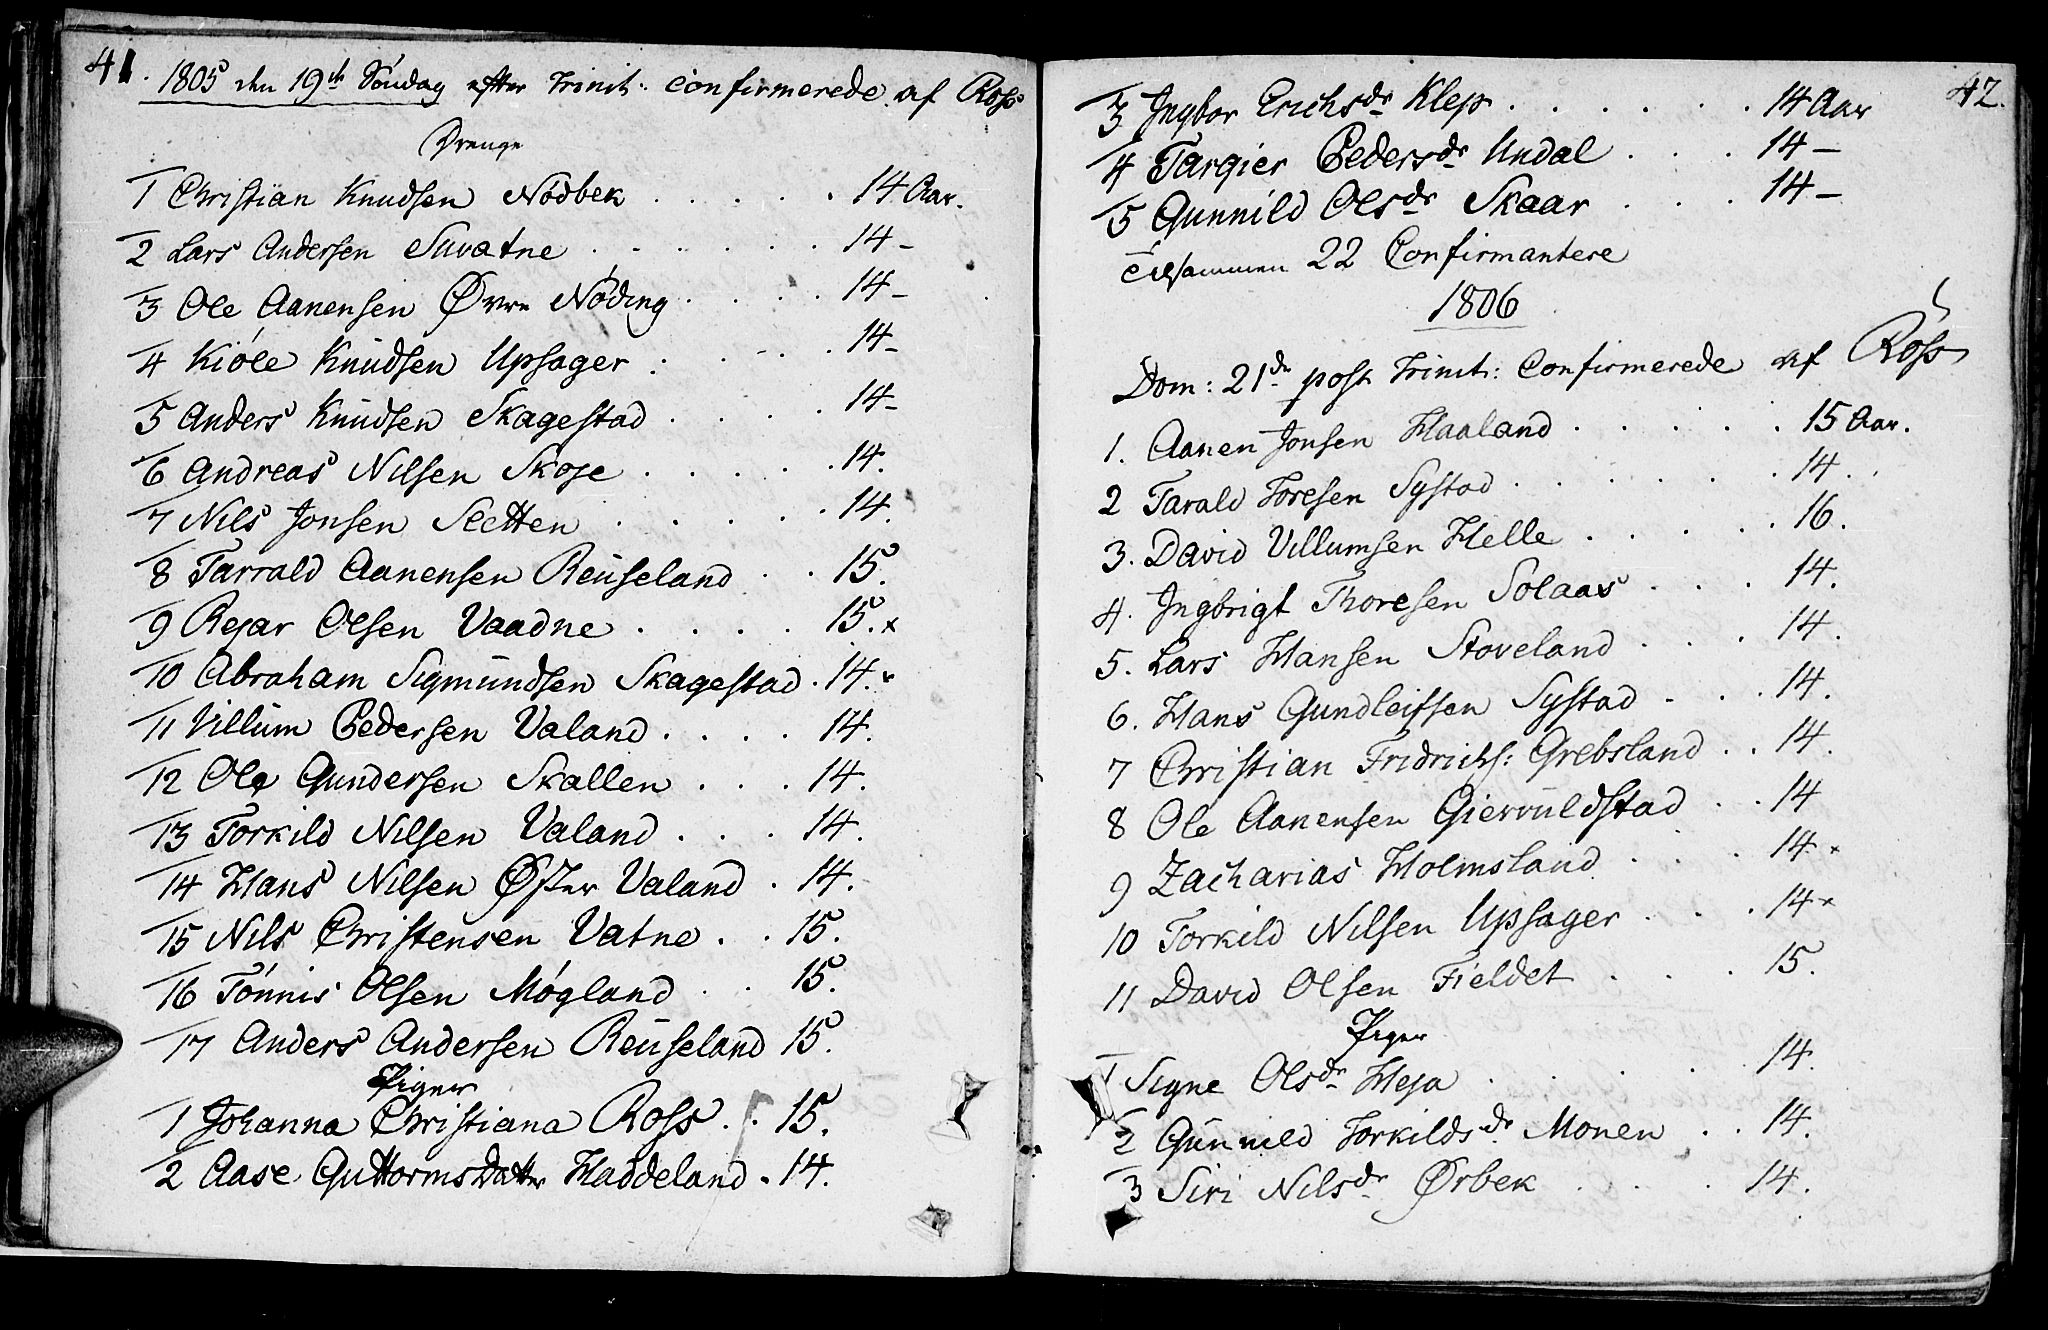 41.
1805 den 19de Søndag efter Trinit: Confirmerede af Ross
Drenge
1 Christian Knudsen Nødbek . . . . . 14 Aar.
2 Lars Andersen Suvatne . . . . . . 14 -
3 Ole Aanensen Øvre Nøding . . . . 14 -
4 Kiøle Knudsen Upsager . . . . 14 -
5 Anders Knudsen Skagestad . . . . 14 -
6 Andreas Nilsen Skoje . . . . . 14.
7 Nils Jonsen Sletten . . . . . 14.
8 Tarrald Aanensen Reuseland . . 15.
9 Rejar Olsen Vaadne . . . . 15. x
10 Abraham Sigmundsen Skagestad . 14. x
11 Villum Pedersen Valand . . . . 14.
12 Ole Gundersen Skallen . . . 14.
13 Torkild Nilsen Valand . . . 14.
14 Hans Nilsen Øster Valand . 14.
15 Nils Christensen Vatne . . 15.
16 Tønnis Olsen Møgland . . 15.
17 Anders Andersen Reuseland 15.
Piger
1 Johanna Christiana Ross . . 15.
2 Aase GuttormsDatter Haddeland . 14.
42.
3 Ingbor Erichsdr Klep . . . . . . 14 Aar
4 Targier Pedersdr Undal . . . 14 -
5 Gunnild Olsdr Skaar . . . 14 -
Tilsammen 22 Confirmantere
1806
Dom: 21de post Trinit: Confirmerede af Ross
1. Aanen Jonsen Haaland . . . . . 15 Aar.
2 Tarald Toresen Systad . . . . . . 14.
3. David Villumsen Helle . . . . . 16.
4. Ingbrigt Thoresen Solaas . . . 14.
5. Lars Hansen Stoveland . . . 14.
6. Hans Gundleifsen Systad . . . 14.
7 Christian Fridrichs: Grebsland . . 14.
8 Ole Aanensen Giervuldstad . . 14
9 Zacharias Holmsland . . . 14 x
10 Torkild Nilsen Upsager . . . 14 x
11 David Olsen Fieldet . . . 15.
Piger
1 Signe Olsdr Heja . . . . . 14.
2 Gunnild Torkildsdr Monen . . 14.
3 Siri Nilsdr Ørbek . . . . 14.